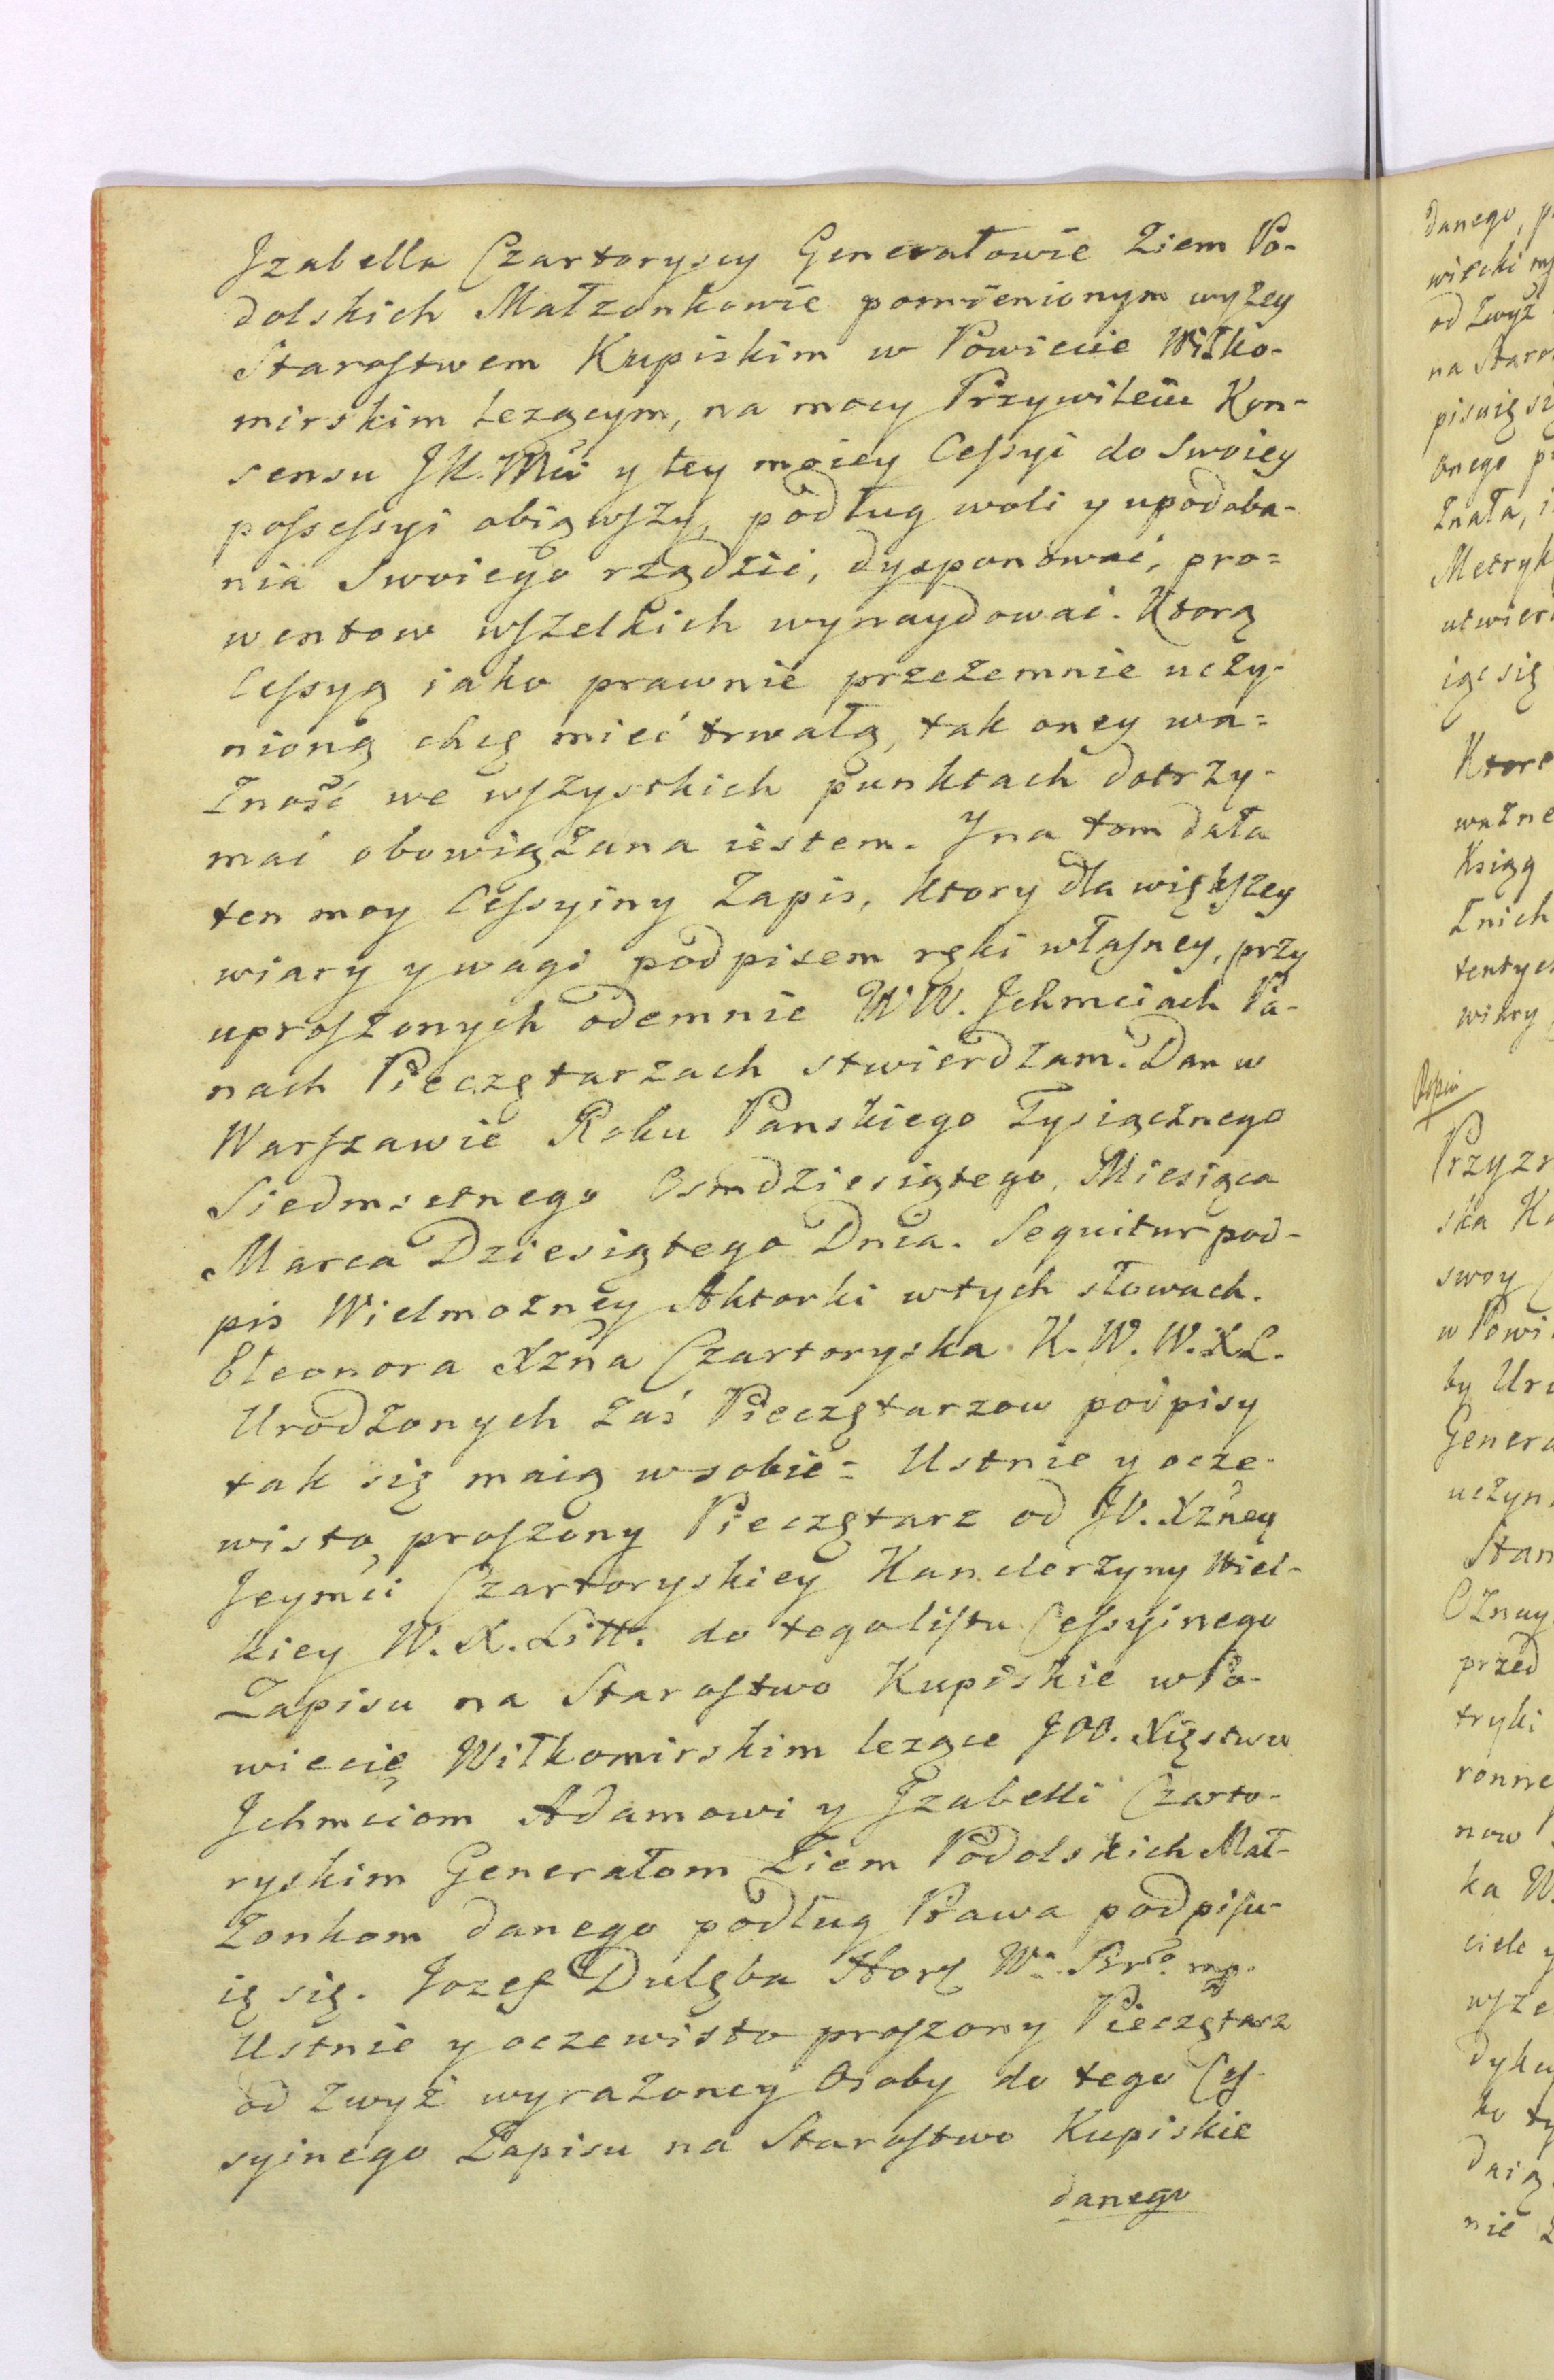 Jzabella Czartoryscy Generałowie Ziem Po-
dolskich Małzonkowie pomienionym wyżey
Starostwem Kupiskim w Powiecie Wiłko-
mirskim lezącym, na mocy Przywileiu Kon-
sensu JK. Mći y tey moiey Cessyi do Swoiey
possessyi obiąwszy, podług woli y upodoba-
nia Swoiego rządzić, dysponować, pro=
wentow wszelkich wynaydować. Ktorą
Cessyą iako prawnie przezemnie uczy-
nioną chcę mieć trwałą, tak oney wa=
żność we wszystkich punktach dotrzy-
mać obowiązana iestem. J na tom dała
ten moy Cessyiny Zapis, ktory dla większey
wiary y wagi podpisem ręki własney, przy
uproszonych odemnie WW. Jchmciach Pa-
nach Pieczętarzach stwierdzam. Dan w
Warszawie Roku Panskiego Tysiącznego
Siedmsetnego Osmdziesiątego, Miesiąca
Marca Dziesiątego Dnia. Sequitur pod-
pis Wielmożney Aktorki w tych słowach.
Eleonora Xżna Czartoryska K. W. W. X L.
Urodzonych zaś Pieczętarzow podpisy
tak się maią w sobie = Ustnie y ocze-
wisto proszony Pieczętarz od JO. Xżney
Jeymći Czartoryskiey Kanclerzyny Wiel-
kiey W. X. Litt. do tego listu Cessyinego
Zapisu na Starostwo Kupiskie w Po-
wiecie Wiłkomirskim lezące JOO. Xięstwu
Jchmciom Adamowi y Jzabelli Czarto-
ryskim Generałom Ziem Podolskich Mał-
żonkom danego podług Prawa podpisu-
ię się. Jozef Dulęba
Ustnie y oczewisto proszony Pieczętarz
od zwyż wyrażoney Osoby do tego Ces-
syinego Zapisu na Starostwo Kupiskie
danego
danego,
od zwyż
Znała,
ięc się
Ktore
ważne
Ksiąg
Znich
wiary
swoy
by
przed
tryki